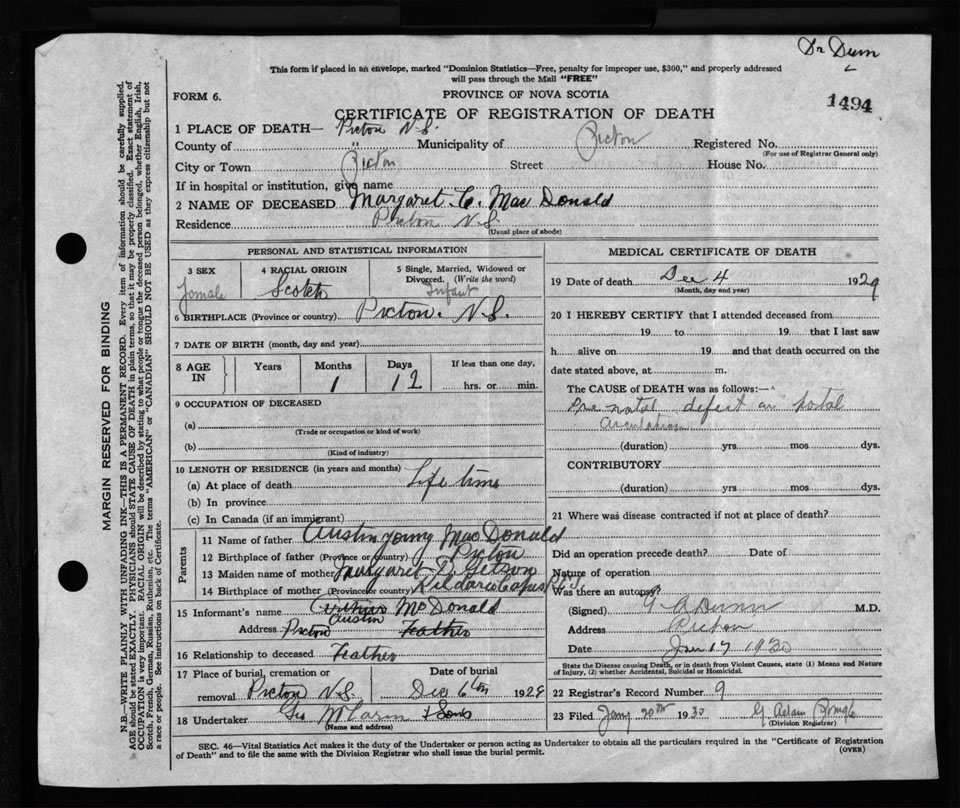 Dr Dunn
This form if placed in an envelope, marked "Dominion Statistics—Free, penalty for improper use, $300," and properly addressed
will pass through the Mail "FREE"
FORM 6.
PROVINCE OF NOVA SCOTIA
1494
CERTIFICATE OF REGISTRATION OF DEATH
1 PLACE OF DEATH— Picton N.S.
County of " Municipality of Picton Registered No.
(For use of Registrar General only)
City or Town Picton Street House No.
If in hospital or institution, give name
2 NAME OF DECEASED Margaret. C. Mac Donald
Residence Picton N.S.
(Usual place of abode)
PERSONAL AND STATISTICAL INFORMATION
3 SEX
female
4 RACIAL ORIGIN
Scotch
5 Single, Married, Widowed or
Divorced. (Write the word)
Infant
6 BIRTHPLACE (Province or country) Picton. N.S.
7 DATE OF BIRTH (month, day and year)
8 AGE
IN
Years
Months
1
Days
12
If less than one day,
hrs. or min.
9 OCCUPATION OF DECEASED
(a)
(Trade or occupation or kind of work)
(b)
(Kind of industry)
10 LENGTH OF RESIDENCE (in years and months)
(a) At place of death Life time
(b) In province
(c) In Canada (if an immigrant)
Parents
11 Name of father Austin MacDonald
12 Birthplace of father (Province or country) Picton
13 Maiden name of mother Margaret
14 Birthplace of mother (Province or country) Kildare Capes P.E.I
15 Informant's name McDonald
Austin
Address Picton Feather
16 Relationship to deceased Feather
17 Place of burial, cremation or
removal Picton N.S.
Date of burial
Dec 6th 1929
18 Undertaker Geo & Sons
(Name and address)
MEDICAL CERTIFICATE OF DEATH
19 Date of death Dec 4 1929
(Month, day and year)
20 I HEREBY CERTIFY that I attended deceased from
19 to 19 that I last saw
h alive on 19 and that death occurred on the
date stated above, at m.
The CAUSE of DEATH was as follows:—
Pre natal defect in foetal
circulation
(duration) yrs. mos dys.
CONTRIBUTORY
(duration) yrs. mos. dys.
21 Where was disease contracted if not at place of death?
Did an operation precede death? Date of
Nature of operation
Was there an autopsy?
(Signed) G A Dunn M.D.
Address Picton
Date Jan 17 1930
State the Disease causing Death, or in death from Violent Causes, state (1) Means and Nature
of Injury, (2) whether Accidental, Suicidal or Homicidal.
22 Registrar's Record Number 9
23 Filed Jany 20th 1930 G
(Division Registrar)
SEC. 46—Vital Statistics Act makes it the duty of the Undertaker or person acting as Undertaker to obtain all the particulars required in the "Certificate of Registration
of Death" and to file the same with the Division Registrar who shall issue the burial permit.
(OVER)
MARGIN RESERVED FOR BINDING
N.B.—WRITE PLAINLY WITH UNFADING INK—THIS IS A PERMANENT RECORD. Every item of information should be carefully supplied.
AGE should be stated EXACTLY. PHYSICIANS should STATE CAUSE OF DEATH in plain terms, so that it may be properly classified. Exact statement of
OCCUPATION is very important. RACIAL ORIGIN will be described by stating to what people or tongue the deceased person belonged, whether English, Irish,
Scotch, French, German, Russian, Ruthenian, etc. The terms "AMERICAN" or "CANADIAN" SHOULD NOT BE USED as they express citizenship but not
a race or people. See instructions on back of Certificate.